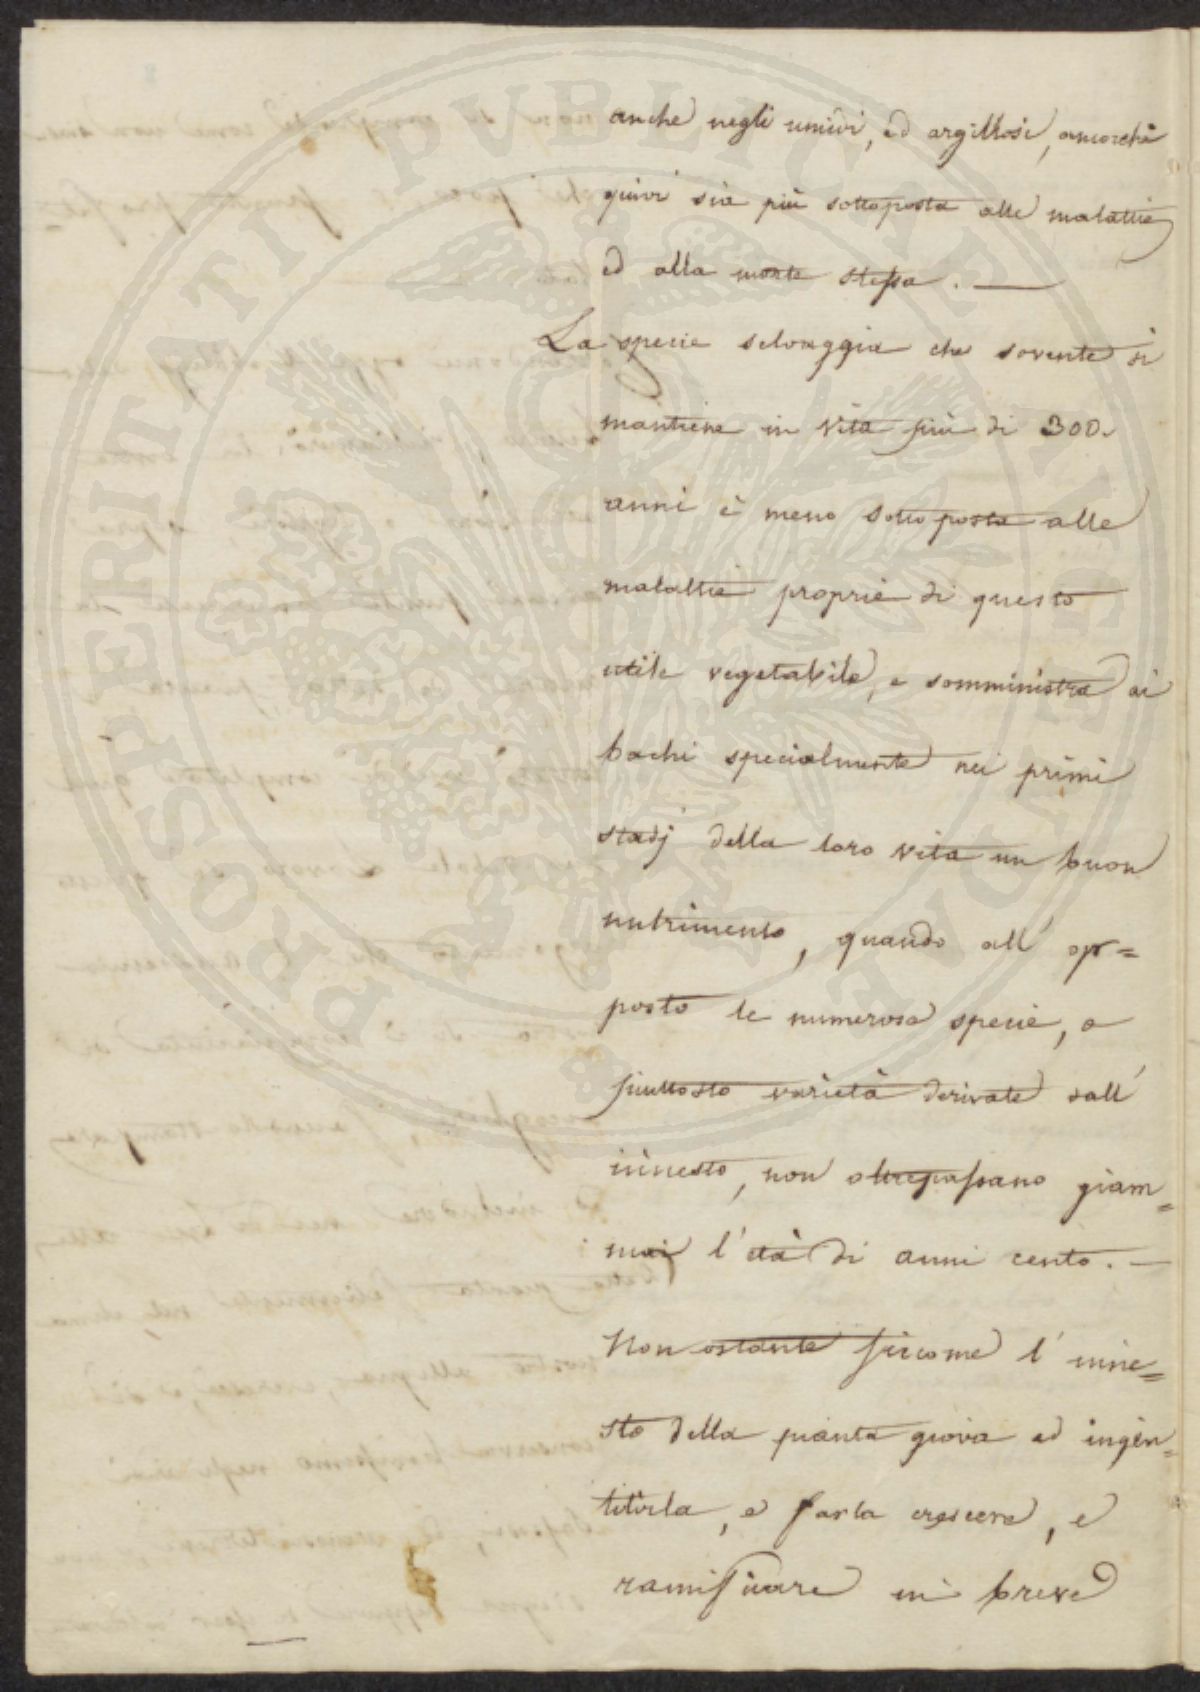 anche negli umidi, ed argillosi, ancorchè
quivi sia più sottoposta alle malattie
ed alla morte stessa. —
La specie selvaggia che sovente si
mantiene in vita più di 300.
anni è meno sottoposta alle
malattie proprie di questo
utile vegetabile, e somministra ai
bachi specialmente nei primi
stadj della loro vita un buon
nutrimento, quando all' op=
posto le numerose specie, o
piuttosto varietà derivate dall'
innesto, non oltrepassano giam=
mai l'età di anni cento. —
Non ostante siccome l' inne=
sto della pianta giova ad ingen=
tilirla, e farla crescere, e
ramificare in breve
PROSPERITATI PVBLICAE AVGENDAE